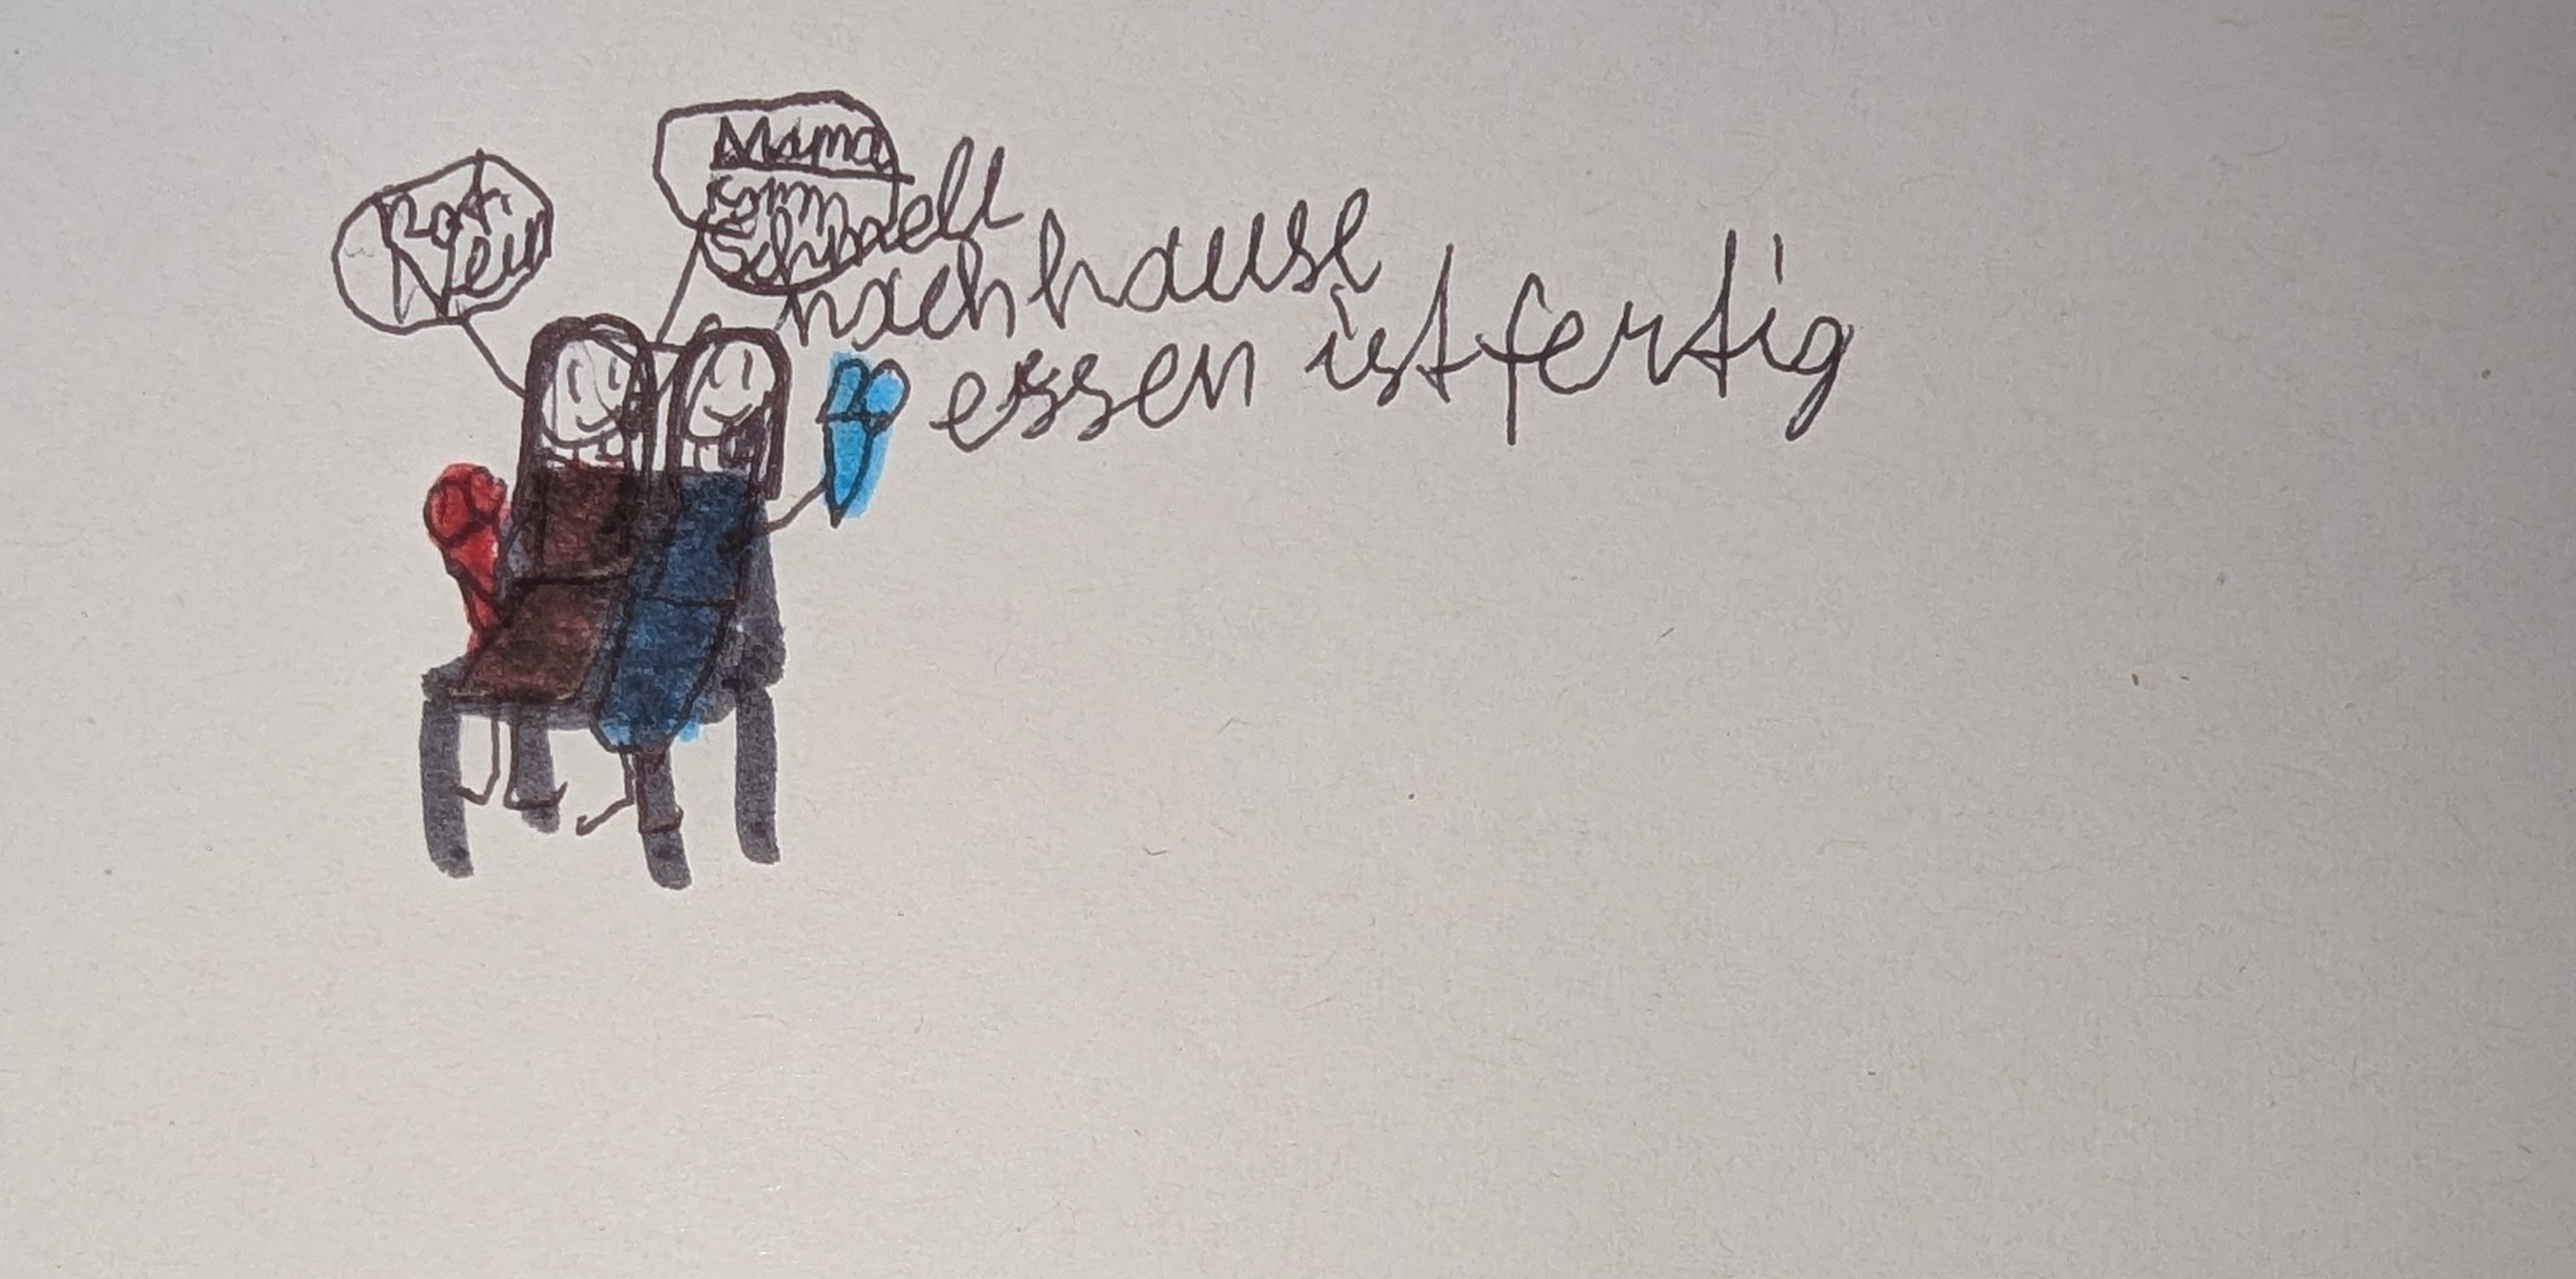 Nein
Mama
komm
Schnell
nachhause
essen ist fertig